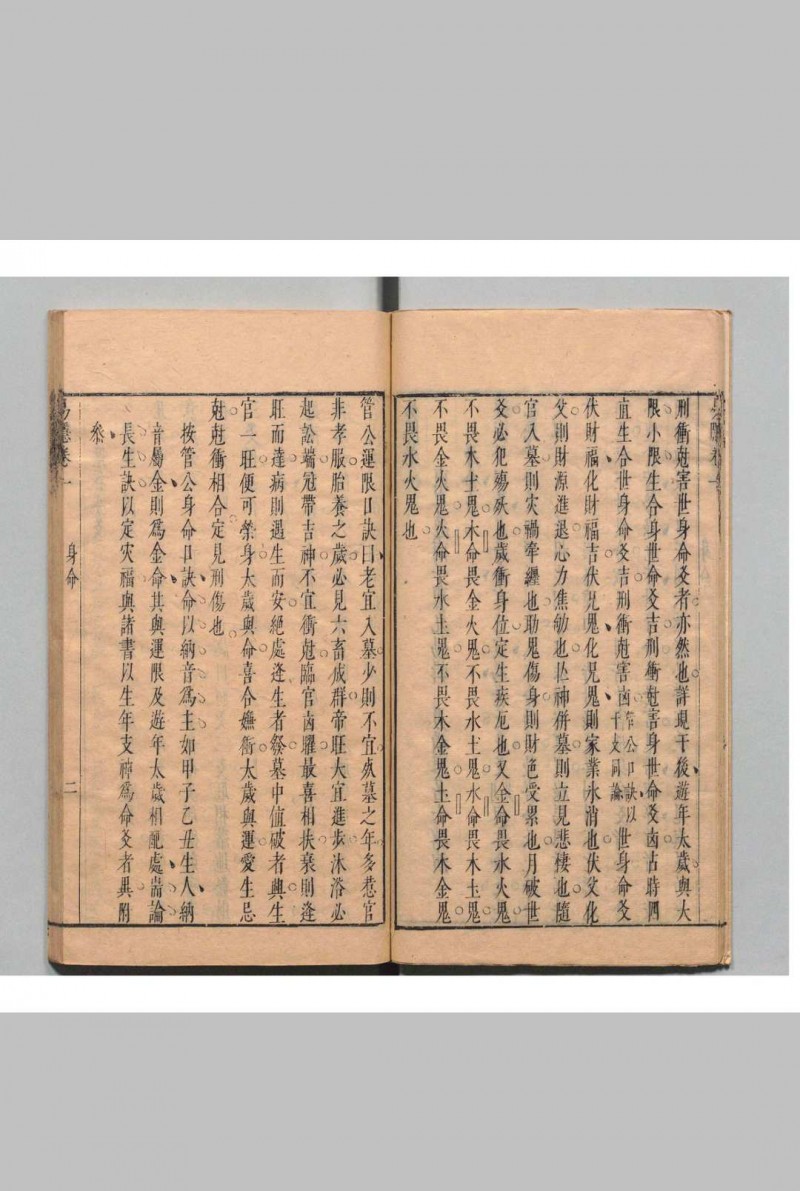 刑衝尅害世身命爻者亦然也詳現干後遊年太歲與大
限小限生合身世命爻吉刑衝尅害身世命爻凶占時四
直生合世身命爻吉刑衝尅害凶管公口訣以干支同論世身命爻
伏財福化財福吉伏兄鬼化兄鬼則家業氷消也伏父化
父則財源進退心力焦劬也亡神併墓則立見悲悽也隨
官入墓則灾禍牽纏也助鬼傷身則財色受累也月破世
爻必犯殤殀也歲衝身位定生疾厄也又金命畏水火鬼
不畏木土鬼木命畏金火鬼不畏水土鬼水命畏木土鬼
不畏金火鬼火命畏水土鬼不畏木金鬼土命畏木金鬼
不畏水火鬼也
管公運限口訣曰老宜入墓少則不宜庫墓之年多惹官
非孝服胎養之歲必見六畜成群帝旺大宜進步沐浴必
起訟端冠帶吉神不宜衝尅臨官凶曜最喜相扶衰則逢
旺而達病則遇生而安絕處逢生者發墓中值破者興生
官一旺便可榮身太歲與命喜合嫌衝太歲與運愛生忌
尅尅衝相合定見刑傷也
按管公身命口訣命以納音爲主如甲子乙丑生人納
音屬金則爲金命其與運限及遊年太歲相配處耑論
長生訣以定灾福與諸書以生年支神爲命爻者異附
叅
身命
二